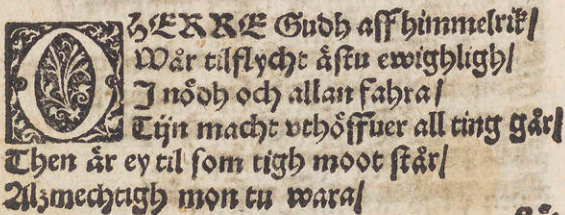 O HERRE Gudh aff himmelrik/
Wår tilflycht ästu ewighligh/
J nödh och allan fahra/
Tijn macht vthöffuer all ting går/
Then är ey til som tigh moot står/
Alzmechtigh mon tu wara/